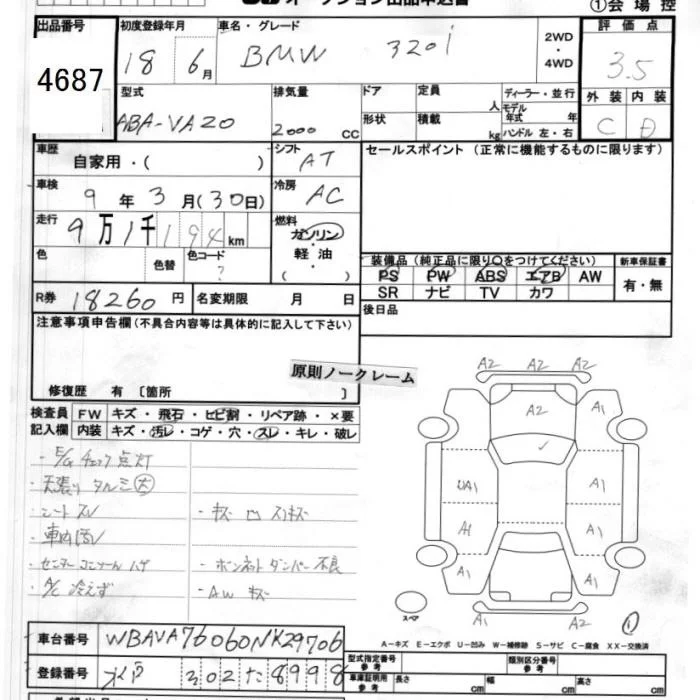 オークション出品申込書
①会場控
出品番号
4687
初度登録年月
18 6月
車名・グレード
BMW 320i
2WD
・
4WD
評価点
3.5
外装 内装
C D
型式
ABA-VA20
排気量
2000 cc
ドア
形状
定員 人
積載 kg
ディーラー・並行
モデル年式 年
ハンドル 左・右
車歴
自家用・( )
シフト
AT
セールスポイント (正常に機能するものに限ります)
車検
9年3月(30日)
冷房
AC
走行
9万1千194km
燃料
ガソリン
・
軽油
( )
色
色替
色コード
?
装備品 (純正品に限り○をつけてください)
PS PW ABS エアB AW
SR ナビ TV カワ
新車保証書
有・無
R券 18260円
名変期限 月 日
後日品
注意事項申告欄(不具合内容等は具体的に記入して下さい)
原則ノークレーム
修復歴 有 〔箇所 〕
検査員
記入欄
FW キズ・飛石・ヒビ割・リペア跡・×要
内装 キズ・汚レ・コゲ・穴・スレ・キレ・破レ
・E/Gチェック点灯
・天張りタルミ大
・シートスレ
・車内汚レ
・センターコンソールハゲ
・A/C冷えず
・キズ凹スリキズ
・ボンネットダンパー不良
・AWキズ
A2 A2 A2
A2
A1 A1
UA1 A1
A1 A1
A1 A1
A2 A1 A2
スペア
①
A-キズ E-エクボ U-凹み W-補修跡 S-サビ C-腐食 XX-交換済
車台番号 WBAVA76060NK29706
登録番号 水戸 302 た 8998
型式指定番号
参考
類別区分番号
参考
車庫証明用
参考
長さ cm
幅 cm
高さ cm